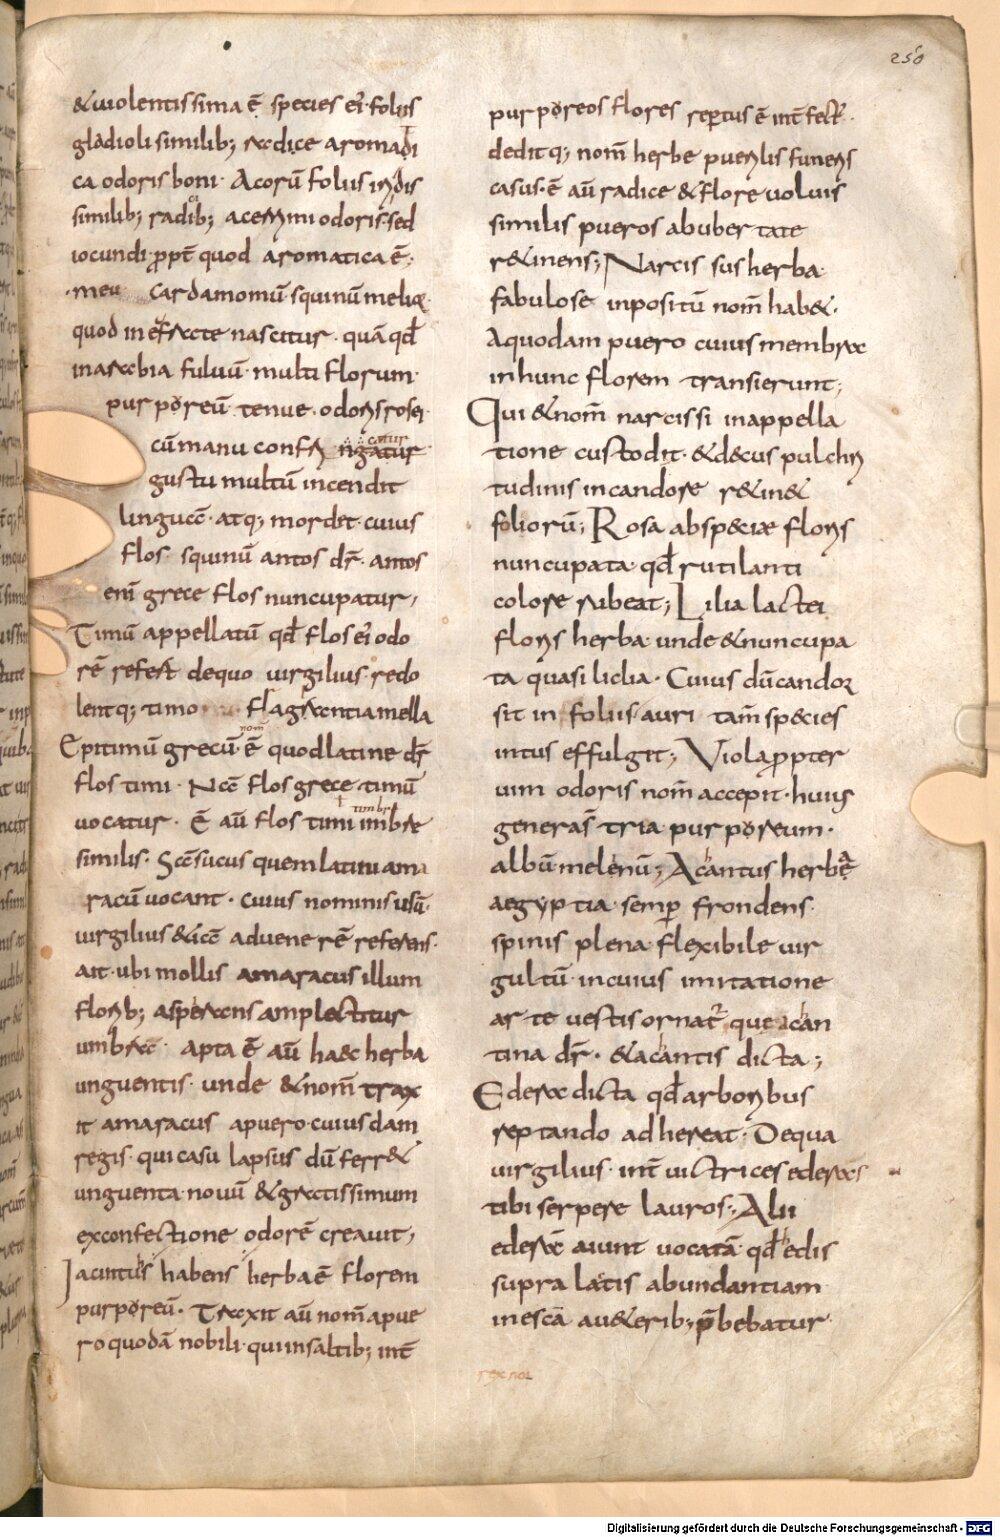 250
&uiolentissima ē species ei foliis
gladioli similib; radice aromati
ca odoris boni· Acorū foliis iridis
similib; radicib; acerrimi odoris sed
iocundi· ꝓpt̄ quod aromatica ē;
cardamomū squinū
quod in eufrate nascitur· quā qd̄
in arabia fuluū· multi florum
purporeū tenue· odoris rosei
cū manu confricatur
gustu multū incendit
linguā· atq; mordet· cuius
flos squinū antos dr̄· antos
eni grece flos nuncupatur;
Timū appellatū qd̄ flos ei odo
rē refert de quo uirgilius· redo
lentq; timo flagrantia mella
Epitimū grecū nom̄ ē quod latine dr̄
flos timi· Nā flos grece timū
uocatur· Ē aū flos timi timbre
similis· Sāsucus quem latini ama
racū uocant· cuius nominis usū
uirgilius &iā aduenerē referens
ait· ubi mollis amaracus illum
florib; asperans amplectitur
umbra· apta ē aū haec herba
unguentis· unde &nom̄ trax
it amaracus a puero cuiusdam
regis· qui casu lapsus dū ferr&
unguenta nouū &gratissimum
ex confectione odorē creauit;
Iacintus habens herba ē florem
purporeū· Traxit aū nom̄ a pue
ro quodā nobili· qui in saltib; int̄
purporeos flores repertus ē int̄fect·
deditq; nom̄ herbe puerilis funeris
casus· ē aū radice &flore uoluis
similis pueros ab ubertate
r&inens; Narcissus herba
fabulose inpositū nom̄ hab&·
A quodam puero cuius membra
in hunc florem transierunt;
Qui &nom̄ narcissi in appella
tione custodit· &decus pulchri
tudinis in candore r&in&
foliorū; Rosa ab specie floris
nuncupata qd̄ rutilanti
colore rubeat; Lilia lactei
floris herba unde &nuncupa
ta quasi liclia· Cuius dū candor
sit in foliis· auri tam̄ species
intus effulgit; Viola ꝓpter
uim odoris nom̄ accepit· huius
generas̄ tria purporeum·
albū melenū; Acantus herba
aegyptia semp̄ frondens
spinis plena flexibile uir
gultū· in cuius imitatione
arte uestis ornat̄ que acan
tina dr̄· &acantis dicta;
Edera dicta qd̄ arboribus
reptando adhereat· De qua
uirgilius· int̄ uictrices ederas
tibi serpere lauros; Alii
ederā aiunt uocatā qd̄ edis
supra latis abundantiam
in escā au&erib; p̄bebatur·
Digitalisierung gefördert durch die Deutsche Forschungsgemeinschaft - DFG